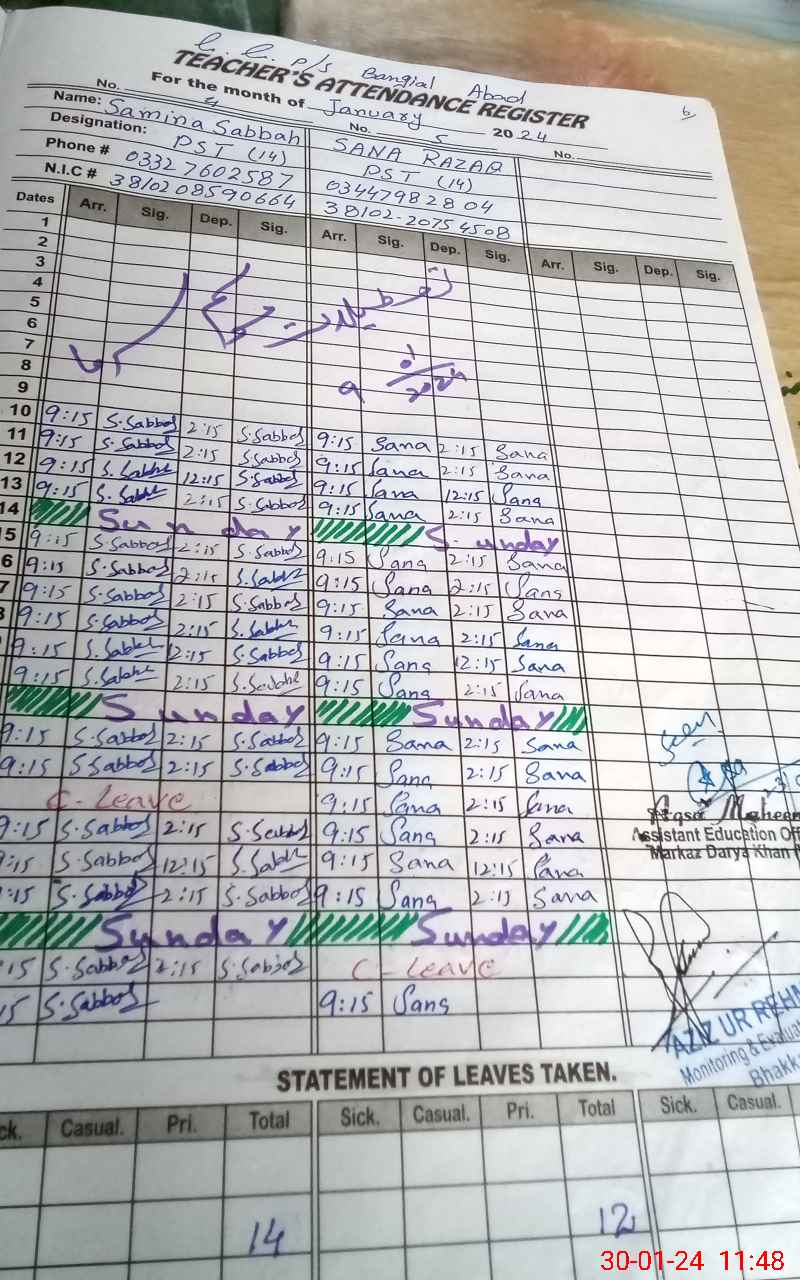 G. G. P/S Bangial Abad
TEACHER'S ATTENDANCE REGISTER
6
For the month of January 2024
No. 4 No. 5 No.
Name: Samina Sabbah SANA RAZAQ
Designation: PST (14) PST (14)
Phone # 03327602587 03447982804
N.I.C # 3810208590664 38102-20754508
Dates Arr. Sig. Dep. Sig. Arr. Sig. Dep. Sig. Arr. Sig. Dep. Sig.
1
2
3
4
5
6
7
8
9
تعطیلات موسم سرما
9 01/2024
10 9:15 S.Sabbah 2:15 S.Sabbah 9:15 Sana 2:15 Sana
11 9:15 S.Sabbah 2:15 S.Sabbah 9:15 Sana 2:15 Sana
12 9:15 S.Sabbah 12:15 S.Sabbah 9:15 Sana 12:15 Sana
13 9:15 S.Sabbah 2:15 S.Sabbah 9:15 Sana 2:15 Sana
14 Sunday Sunday
15 9:15 S.Sabbah 2:15 S.Sabbah 9:15 Sana 2:15 Sana
6 9:15 S.Sabbah 2:15 S.Sabbah 9:15 Sana 2:15 Sana
7 9:15 S.Sabbah 2:15 S.Sabbah 9:15 Sana 2:15 Sana
8 9:15 S.Sabbah 2:15 S.Sabbah 9:15 Sana 2:15 Sana
9:15 S.Sabbah 12:15 S.Sabbah 9:15 Sana 12:15 Sana
9:15 S.Sabbah 2:15 S.Sabbah 9:15 Sana 2:15 Sana
Sunday Sunday
9:15 S.Sabbah 2:15 S.Sabbah 9:15 Sana 2:15 Sana
9:15 S.Sabbah 2:15 S.Sabbah 9:15 Sana 2:15 Sana
C-Leave 9:15 Sana 2:15 Sana
9:15 S.Sabbah 2:15 S.Sabbah 9:15 Sana 2:15 Sana
9:15 S.Sabbah 12:15 S.Sabbah 9:15 Sana 12:15 Sana
:15 S.Sabbah 2:15 S.Sabbah 9:15 Sana 2:15 Sana
Sunday Sunday
15 S.Sabbah 2:15 S.Sabbah C-Leave
15 S.Sabbah 9:15 Sana
Seen
Aqsa Maheen
Assistant Education Off
Markaz Darya Khan
AZIZ UR REHM
Monitoring & Evaluat
Bhakk
STATEMENT OF LEAVES TAKEN.
ck. Casual. Pri. Total Sick. Casual. Pri. Total Sick. Casual.
14 12
30-01-24 11:48